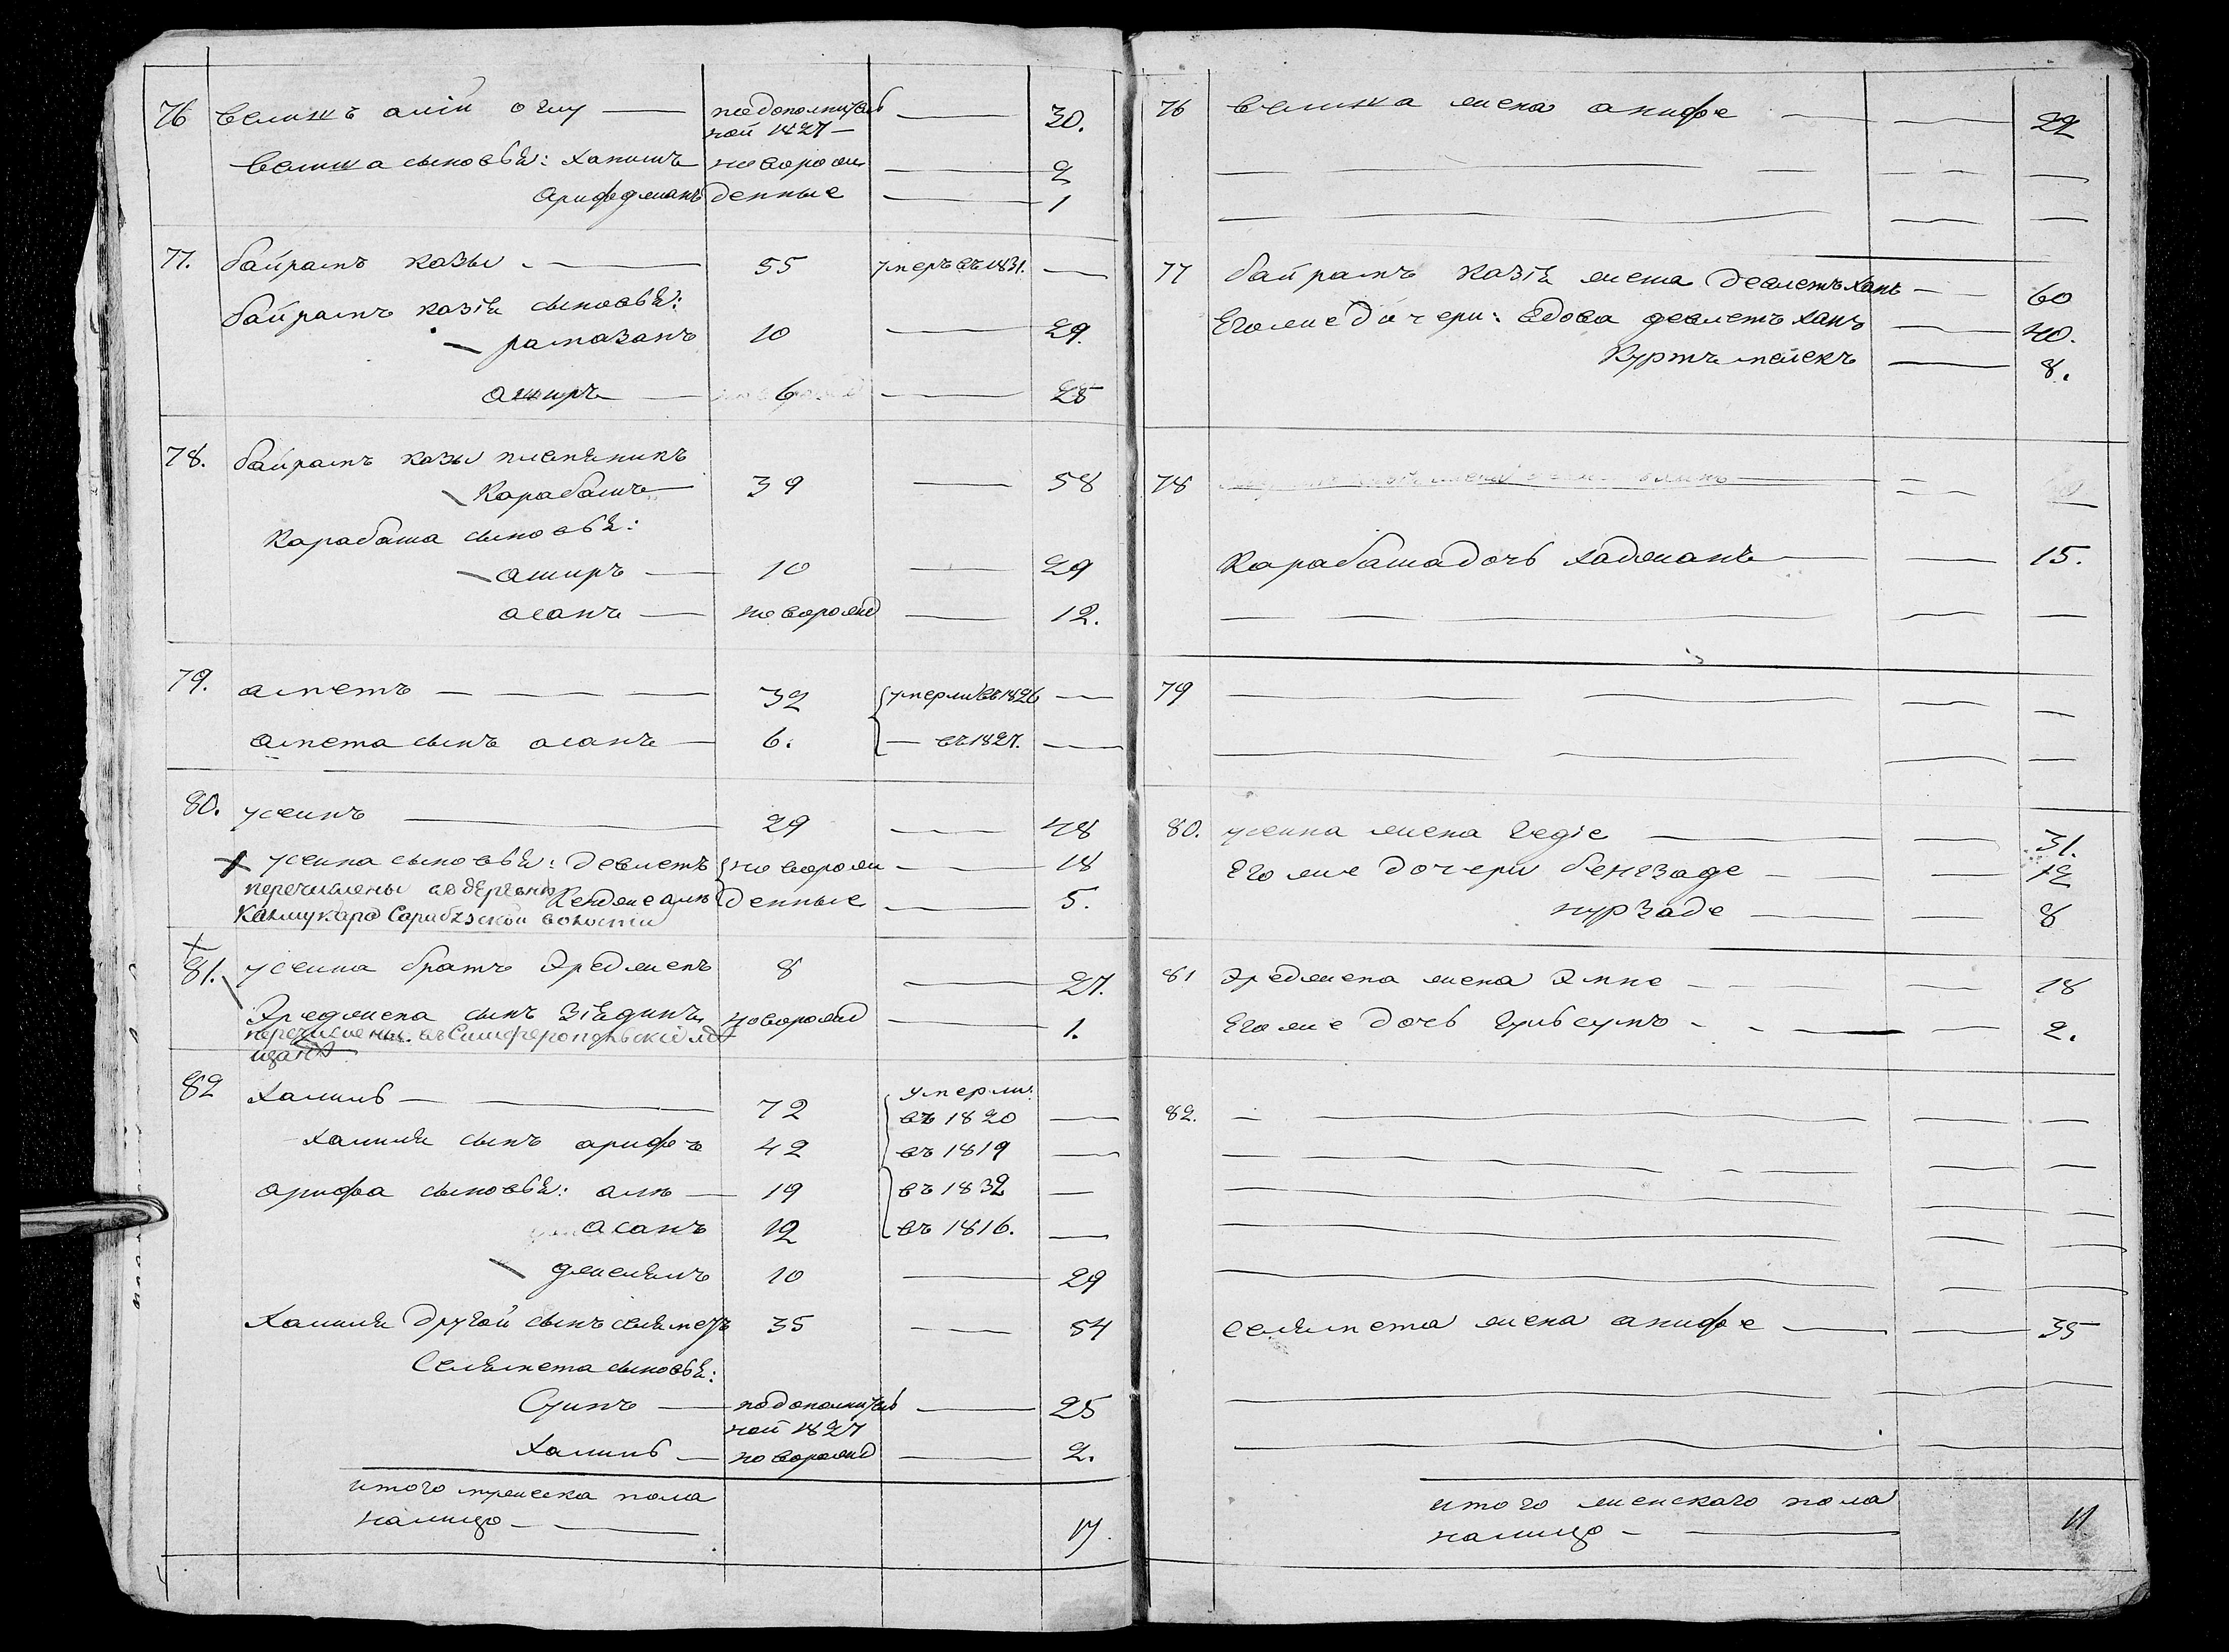 76 велишъ алій оглу — подополнитель — 30.
ной 1827 —
велиша сыновья: халилъ новорож — 2
арифджанъ денные — 1
77. байрамъ казы — 55 умеръ въ 1831. —
байрамъ казія сыновья:
рамазанъ 10 — 29.
аширъ — 6 — 28
78. байрамъ казы племянникъ
Карабашъ 39 — 58
Карабаша сыновья:
аширъ — 10 — 29
асанъ — новорожд — 12.
79. аметъ — — — — 32 умерли въ 1826 —
амета сынъ асанъ — 6. — въ 1827. —
80. усеинъ — 29 — 48
усеина сыновья: девлетъ новорож — 18
перечислены
денные — 5.
81. усеина братъ Эреджепъ 8 — 27.
Эреджепа сынъ Зіядинъ новорожд — 1.
перечислены въ Симферопольскіе мѣ
щане
82 Халиль — 72 умерли
въ 1820 —
халиля сынъ арифъ 42 въ 1819 —
арифа сыновья: али — 19 въ 1832 —
асанъ 12 въ 1816. —
джелялъ 10 — 29
Халиля другой сынъ селяметъ 35 — 54
Селямета сыновья:
Суинъ — подополнитель — 25
ной 1827
Халиль — новорожд — 2.
итого мужеска пола
налицо — 17.
76 велиша жена анифе — — 22
77 байрамъ казія жена девлетъ ханъ — 60
Его же дочери: вдова девлетъ ханъ — 40.
Куртъ мелекъ — 8.
78
Карабаша дочь хаджанъ — — 15.
79
80. усеина жена Гедіе — — 31.
Его же дочери бенгзаде — — 12
нурзаде — — 8
81 Эреджепа жена Эмне — — 18
Его же дочь Гульсумъ — — 2.
82.
селямета жена анифе — — 35
итого женскаго пола
налицо — 11